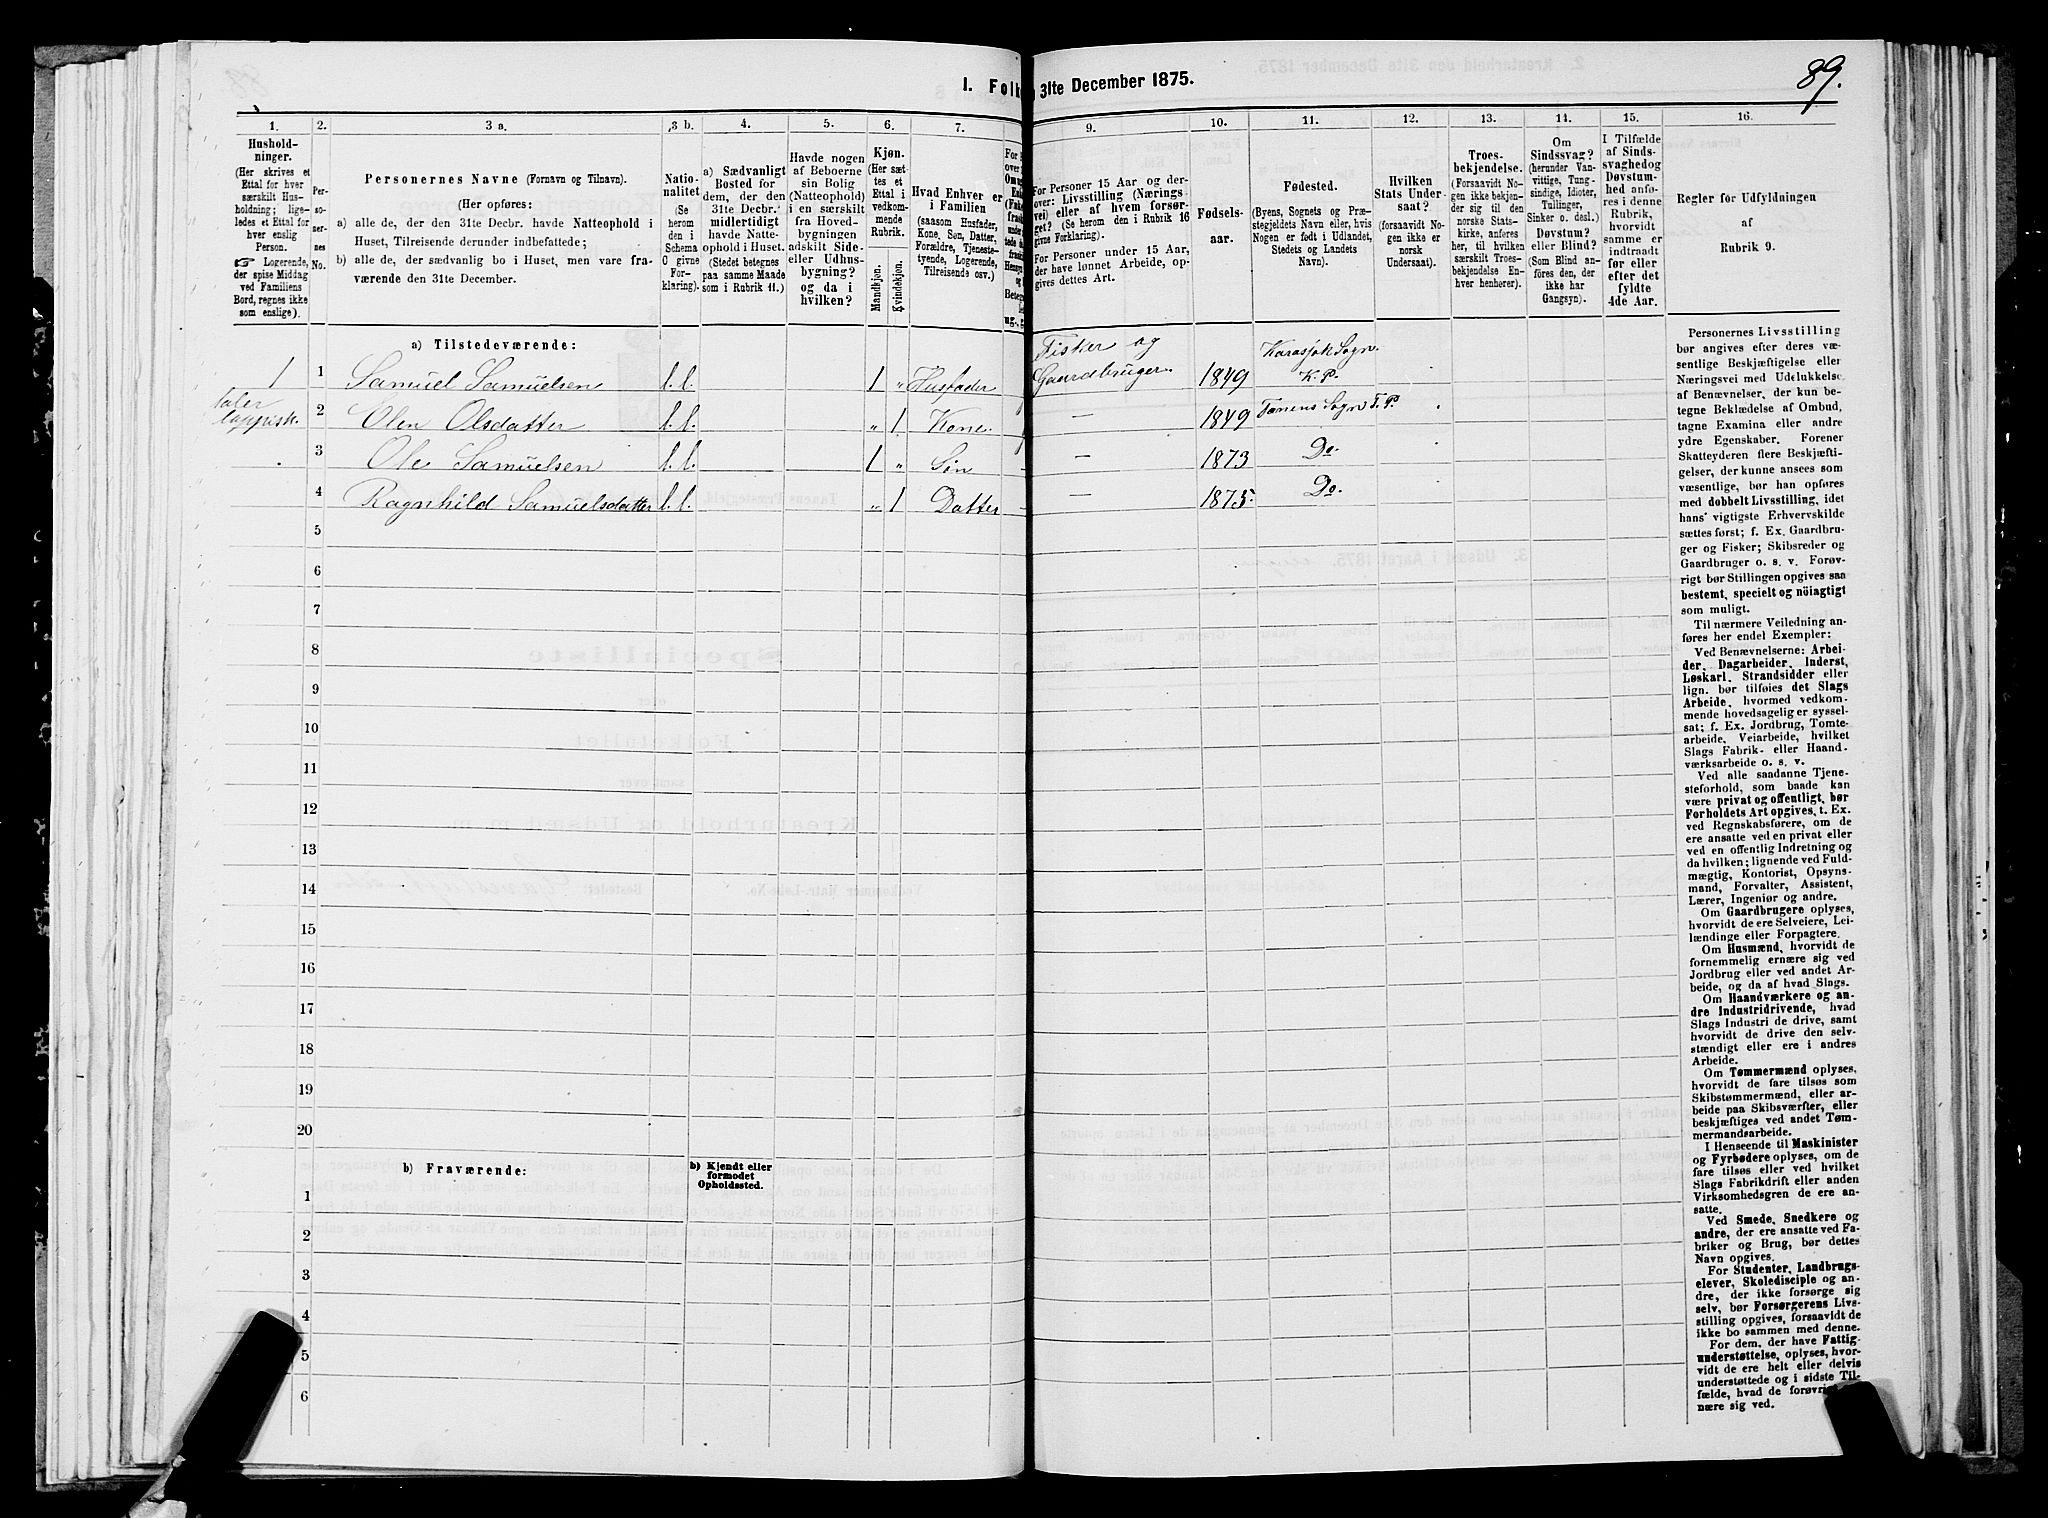 89.
I. Folk
31te December 1875.
1.
2.
3 a.
3 b.
4.
5.
6.
7.
9.
10.
11.
12.
13.
14.
15.
16.
Hushold-
ninger.
(Her skrives et
Ettal for hver
særskilt Hus-
holdning; lige-
ledes et Ettal for
hver enslig
Person.
☞ Logerende,
der spise Middag
ved Familiens
Bord, regnes ikke
som enslige).
Per-
so-
ner-
nes
No.
Personernes Navne (Fornavn og Tilnavn).
(Her opføres:
a) alle de, der den 31te Decbr. havde Natteophold i
Huset, Tilreisende derunder indbefattede;
b) alle de, der sædvanlig bo i Huset, men vare fra-
værende den 31te December.
Natio-
nalitet
(Se
herom
den i
Schema
O givne
For-
klaring).
a) Sædvanligt
Bosted for
dem, der den
31te Decbr.
midlertidigt
havde Natte-
ophold i Huset.
(Stedet betegnes
paa samme Maade
som i Rubrik 11.)
Havde nogen
af Beboerne
sin Bolig
(Natteophold)
i en særskilt
fra Hoved-
bygningen
adskilt Side-
eller Udhus-
bygning?
og da i
hvilken?
Kjøn.
(Her sæt-
tes et
Ettal i
vedkom-
mende
Rubrik.
Mandkjøn.
Kvindekjøn.
Hvad Enhver er
i Familien
(saasom Husfader,
Kone, Søn, Datter,
Forældre, Tjeneste-
tyende, Logerende,
Tilreisende osv.)
For Personer 15 Aar og der-
over: Livsstilling (Nærings-
vei) eller af hvem forsør-
get? (Se herom den i Rubrik 16
givne Forklaring).
For Personer under 15 Aar,
der have lønnet Arbeide, op-
gives dettes Art.
Fødsels-
aar.
Fødested.
(Byens, Sognets og Præ-
stegjeldets Navn eller, hvis
Nogen er født i Udlandet,
Stedets og Landets
Navn).
Hvilken
Stats Under-
saat?
(forsaavidt No-
gen ikke er
norsk
Undersaat).
Troes-
bekjendelse.
(Forsaavidt No-
gen ikke bekjen-
der sig til den
norske Stats-
kirke, anføres
her, til hvilken
særskilt Troes-
bekjendelse En-
hver henhører).
Om
Sindssvag?
(herunder Van-
vittige, Tung-
sindige, Idioter,
Tullinger,
Sinker o. desl.)
Døvstum?
eller Blind?
(Som Blind an-
føres den, der
ikke har
Gangsyn).
I Tilfælde
af Sinds-
svaghedog
Døvstum-
hed anfø-
res i denne
Rubrik,
hvorvidt
samme er
indtraadt
før eller
efter det
fyldte
4de Aar.
Regler for Udfyldningen
af
Rubrik 9.
a) Tilstedeværende:
1 1 Samuel Samuelsen l.l. 1 „ Husfader Fisker og Gaardbruger. 1849 Karasjok Sogn. K. P.
taler lappisk. 2 Olen Olsdatter l.l. „ 1 Kone. — 1849 Tanens Sogn T. P.
3 Ole Samuelsen l.l. 1 „ Søn — 1873 Do.
4 Ragnhild Samuelsdatter l.l. „ 1 Datter — 1875. Do.
5
6
7
8
9
10
11
12
13
14
15
16
17
18
19
20
b) Fraværende:
b) Kjendt eller
formodet
Opholdssted.
1
2
3
4
5
6
Personernes Livsstilling
bør angives efter deres væ-
sentlige Beskjæftigelse eller
Næringsvei med Udelukkelse
af Benævnelser, der kun be-
tegne Beklædelse af Ombud,
tagne Examina eller andre
ydre Egenskaber. Forener
Skatteyderen flere Beskjæfti-
gelser, der kunne ansees som
væsentlige, bør han opføres
med dobbelt Livsstilling, idet
hans vigtigste Erhvervskilde
sættes først; f. Ex. Gaardbru-
ger og Fisker; Skibsreder og
Gaardbruger o. s. v. Forøv-
rigt bør Stillingen opgives saa
bestemt, specielt og nöiagtigt
som muligt.
Til nærmere Veiledning an-
føres her endel Exempler:
Ved Benævnelserne: Arbei-
der, Dagarbeider, Inderst,
Løskarl, Strandsidder eller
lign. bør tilføies det Slags
Arbeide, hvormed vedkom-
mende hovedsagelig er syssel-
sat; f. Ex. Jordbrug, Tomte-
arbeide, Veiarbeide, hvilket
Slags Fabrik- eller Haand-
værksarbeide o. s. v.
Ved alle saadanne Tjene-
steforhold, som baade kan
være privat og offentligt, bør
Forholdets Art opgives, t. Ex.
ved Regnskabsførere, om de
ere ansatte ved en privat eller
ved en offentlig Indretning og
da hvilken; lignende ved Fuld-
mægtig, Kontorist, Opsyns-
mand, Forvalter, Assistent,
Lærer, Ingeniør og andre.
Om Gaardbrugere oplyses,
hvorvidt de ere Selveiere, Lei-
lændinge eller Forpagtere.
Om Husmænd, hvorvidt de
fornemmelig ernære sig ved
Jordbrug eller ved andet Ar-
beide, og da af hvad Slags.
Om Haandværkere og an-
dre Industridrivende, hvad
Slags Industri de drive, samt
hvorvidt de drive den selv-
stændigt eller ere i andres
Arbeide.
Om Tømmermænd oplyses,
hvorvidt de fare tilsøs som
Skibstømmermænd, eller ar-
beide paa Skibsværfter, eller
beskjæftiges ved andet Tøm-
mermandsarbeide.
I Henseende til Maskinister
og Fyrbødere oplyses, om de
fare tilsøs eller ved hvilket
Slags Fabrikdrift eller anden
Virksomhedsgren de ere an-
satte.
Ved Smede, Snedkere og
andre, der ere ansatte ved Fa-
briker og Brug, bør dettes
Navn opgives.
For Studenter, Landbrugs-
elever, Skoledisciple og an-
dre, der ikke forsørge sig
selv, bør Forsørgerens Livs-
stilling opgives, forsaavidt de
ikke bo sammen med denne.
For dem, der have Fattig-
understøttelse, oplyses, hvor-
vidt de ere helt eller delvis
understøttede og i sidste Til-
fælde, hvad de forøvri
nære sig ved.